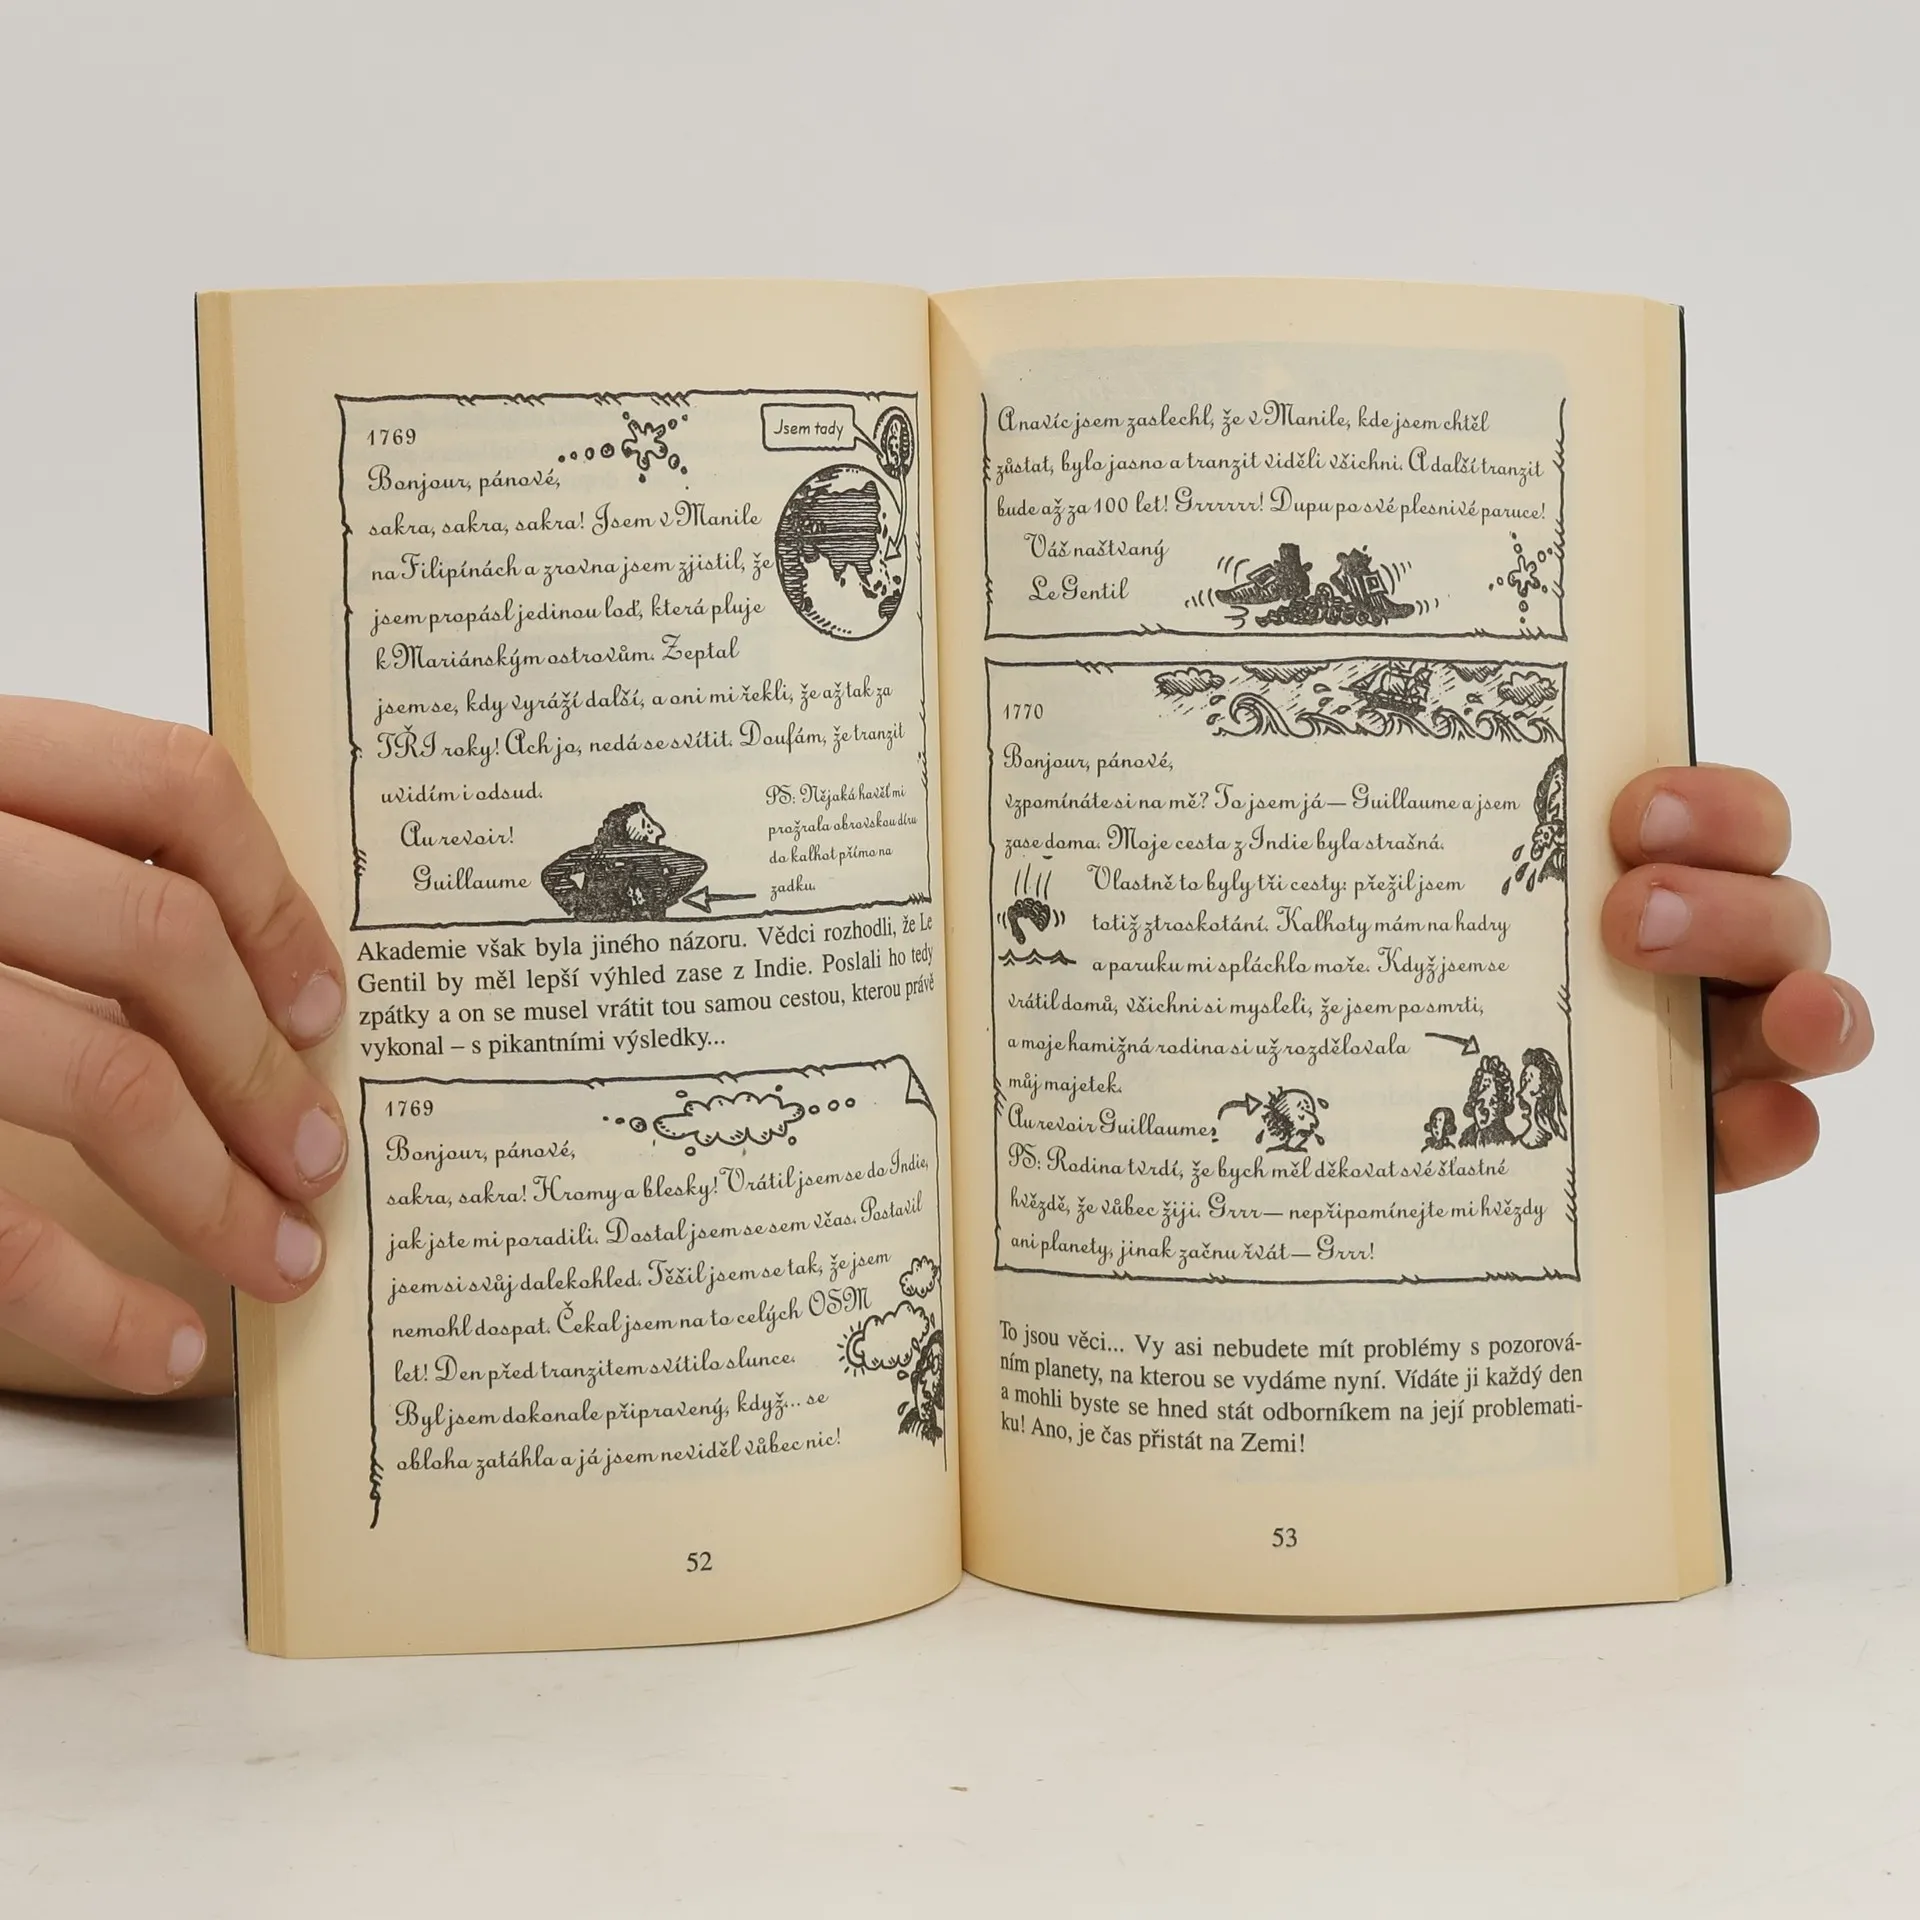 1769
Jsem tady
Bonjour, pánové,
sakra, sakra, sakra! Jsem v Manile
na Filipínách a zrovna jsem zjistil, že
jsem propásl jedinou loď, která pluje
k Mariánským ostrovům. Zeptal
jsem se, kdy vyráží další, a oni mi řekli, že až tak za
TŘI roky! Ach jo, nedá se svítit. Doufám, že tranzit
uvidím i odsud.
Au revoir!
Guillaume
PS: Nějaká havěť mi
prožrala obrovskou díru
do kalhot přímo na
zadku.
Akademie však byla jiného názoru. Vědci rozhodli, že Le
Gentil by měl lepší výhled zase z Indie. Poslali ho tedy
zpátky a on se musel vrátit tou samou cestou, kterou právě
vykonal – s pikantními výsledky...
1769
Bonjour, pánové,
sakra, sakra! Hromy a blesky! Vrátil jsem se do Indie,
jak jste mi poradili. Dostal jsem se sem včas. Postavil
jsem si svůj dalekohled. Těšil jsem se tak, že jsem
nemohl dospat. Čekal jsem na to celých OSM
let! Den před tranzitem svítilo slunce.
Byl jsem dokonale připravený, když... se
obloha zatáhla a já jsem neviděl vůbec nic!
52
A navíc jsem zaslechl, že v Manile, kde jsem chtěl
zůstat, bylo jasno a tranzit viděli všichni. A další tranzit
bude až za 100 let! Grrrrrr! Dupu po své plesnivé paruce!
Váš naštvaný
Le Gentil
1770
Bonjour, pánové,
vzpomínáte si na mě? To jsem já — Guillaume a jsem
zase doma. Moje cesta z Indie byla strašná.
Vlastně to byly tři cesty: přežil jsem
totiž ztroskotání. Kalhoty mám na hadry
a paruku mi spláchlo moře. Když jsem se
vrátil domů, všichni si mysleli, že jsem po smrti,
a moje hamižná rodina si už rozdělovala
můj majetek.
Au revoir Guillaume.
PS: Rodina tvrdí, že bych měl děkovat své šťastné
hvězdě, že vůbec žiji. Grrr — nepřipomínejte mi hvězdy
ani planety, jinak začnu řvát — Grrr!
To jsou věci... Vy asi nebudete mít problémy s pozorová-
ním planety, na kterou se vydáme nyní. Vídáte ji každý den
a mohli byste se hned stát odborníkem na její problemati-
ku! Ano, je čas přistát na Zemi!
53